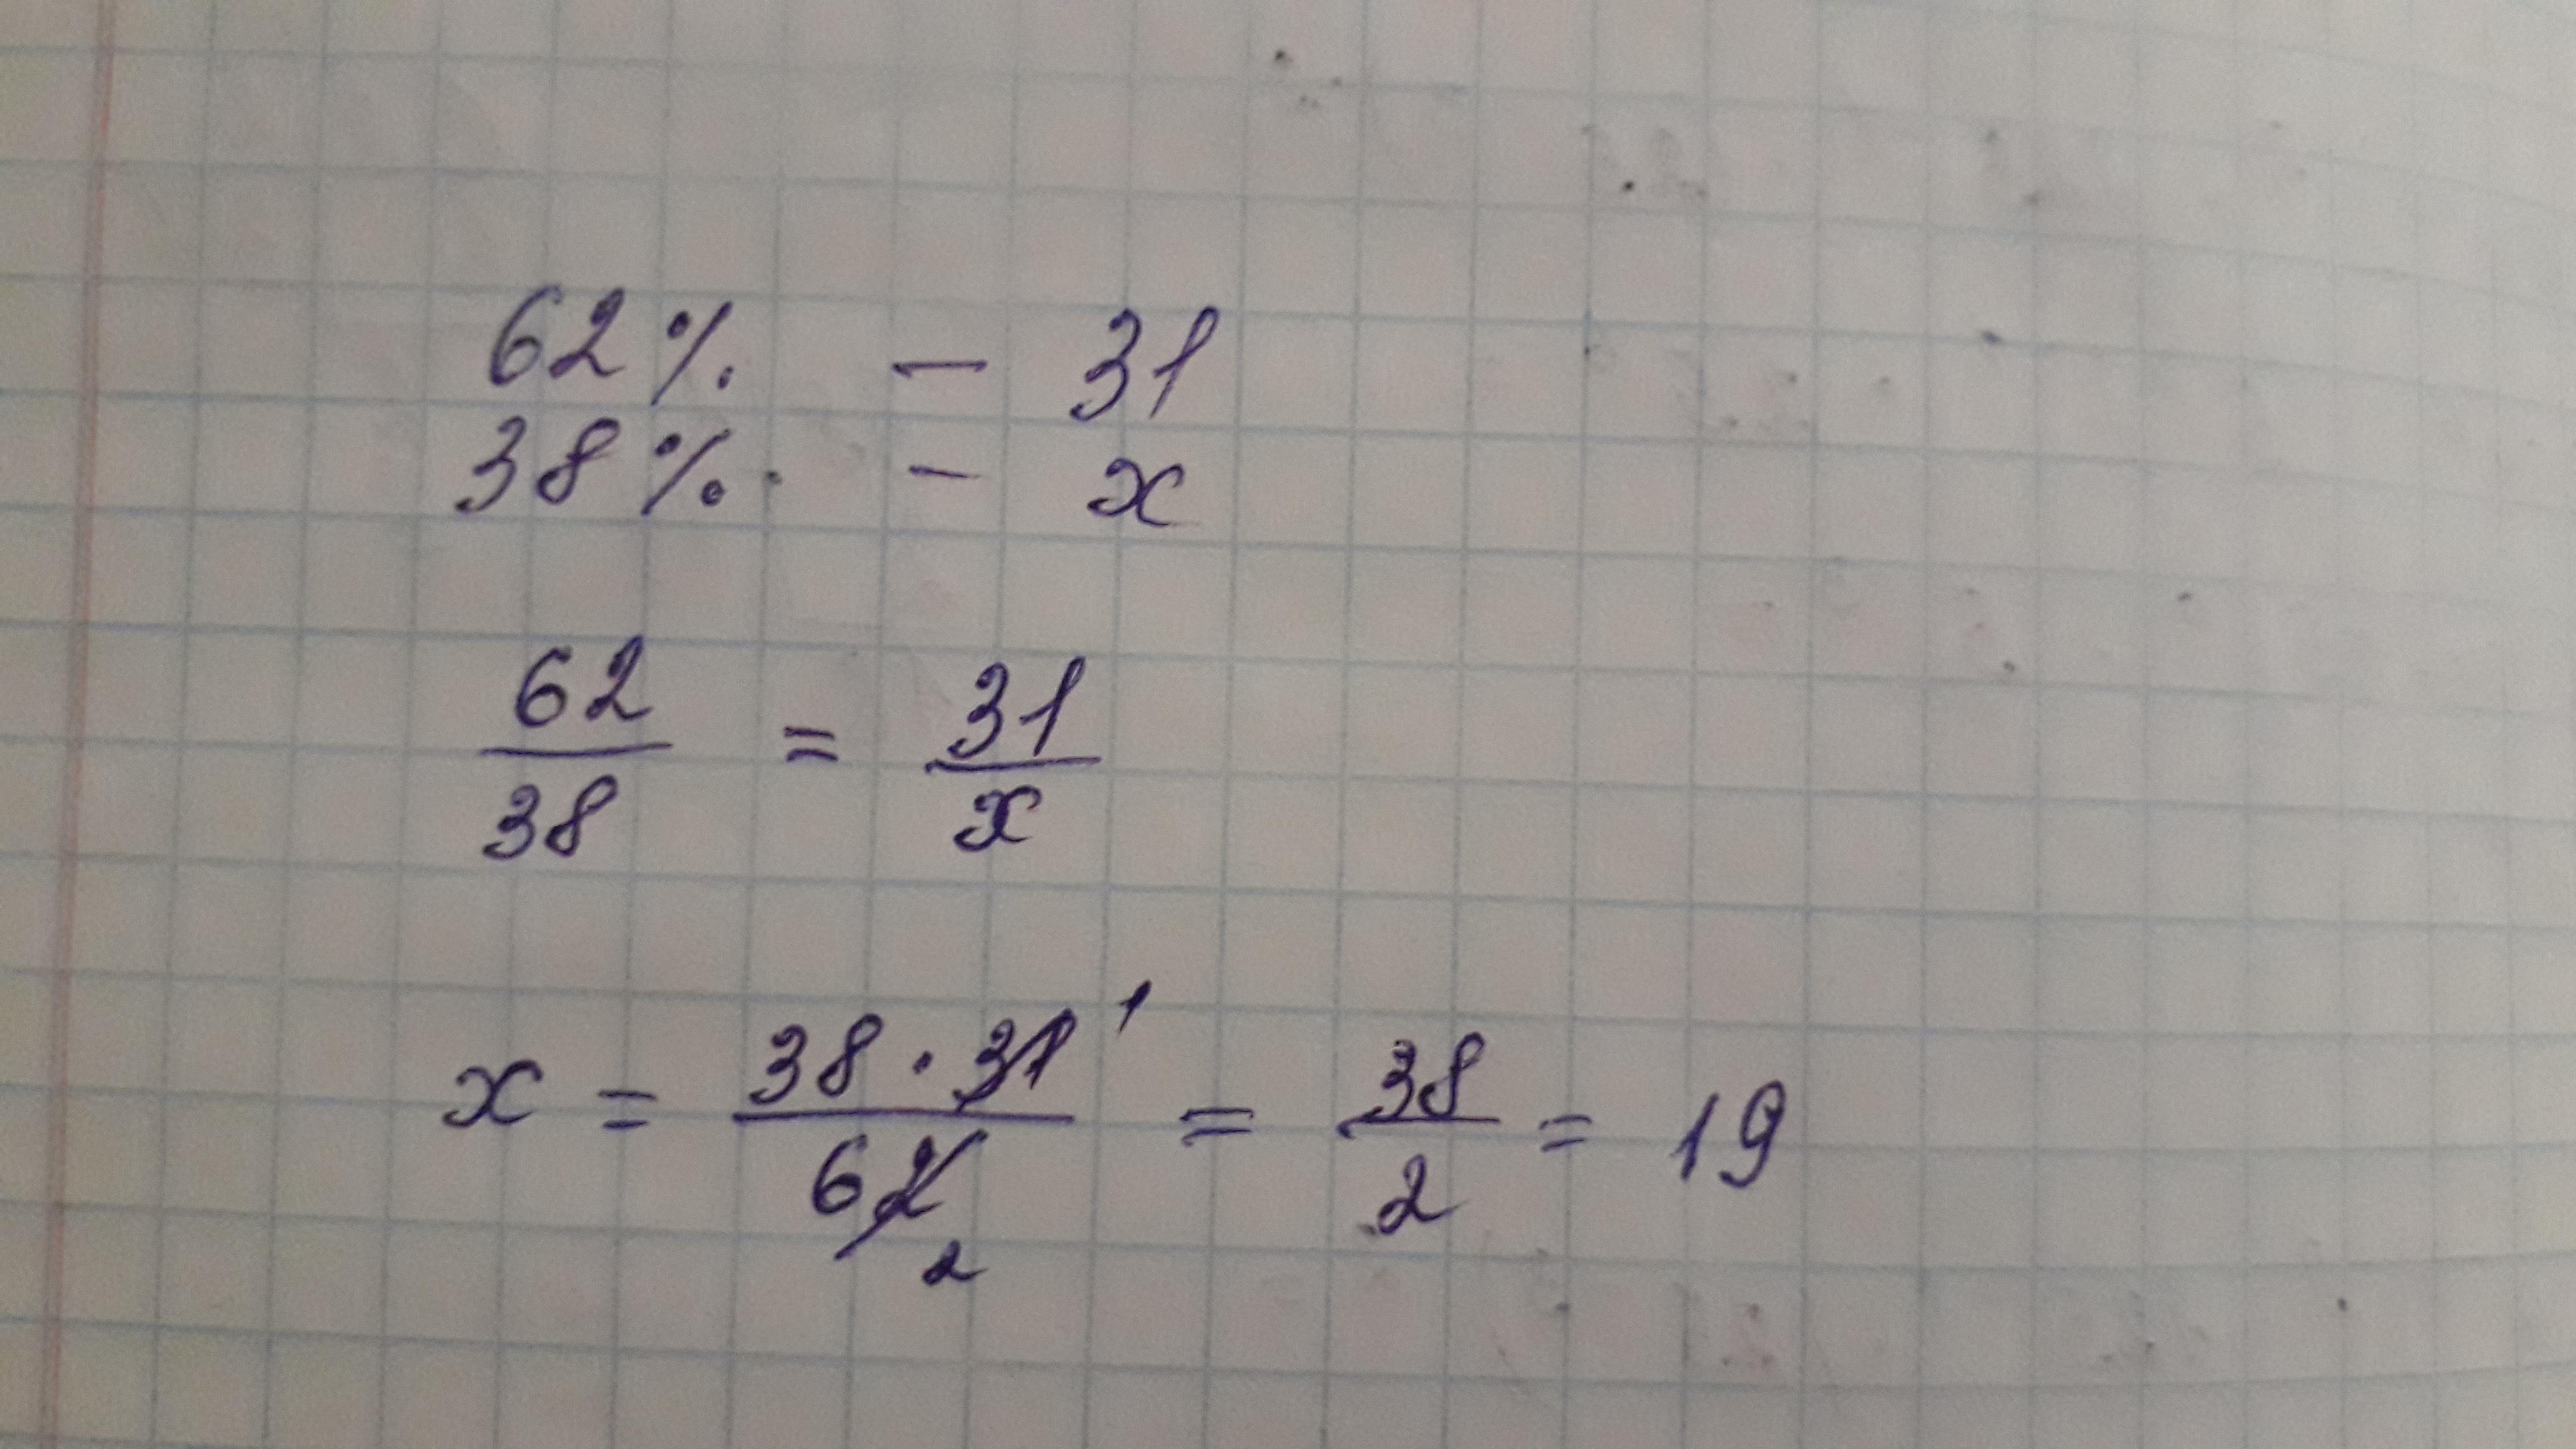 62% - 31
38% - x
62/38 = 31/x
x = 38 · 31 1 / 62 2 = 38/2 = 19